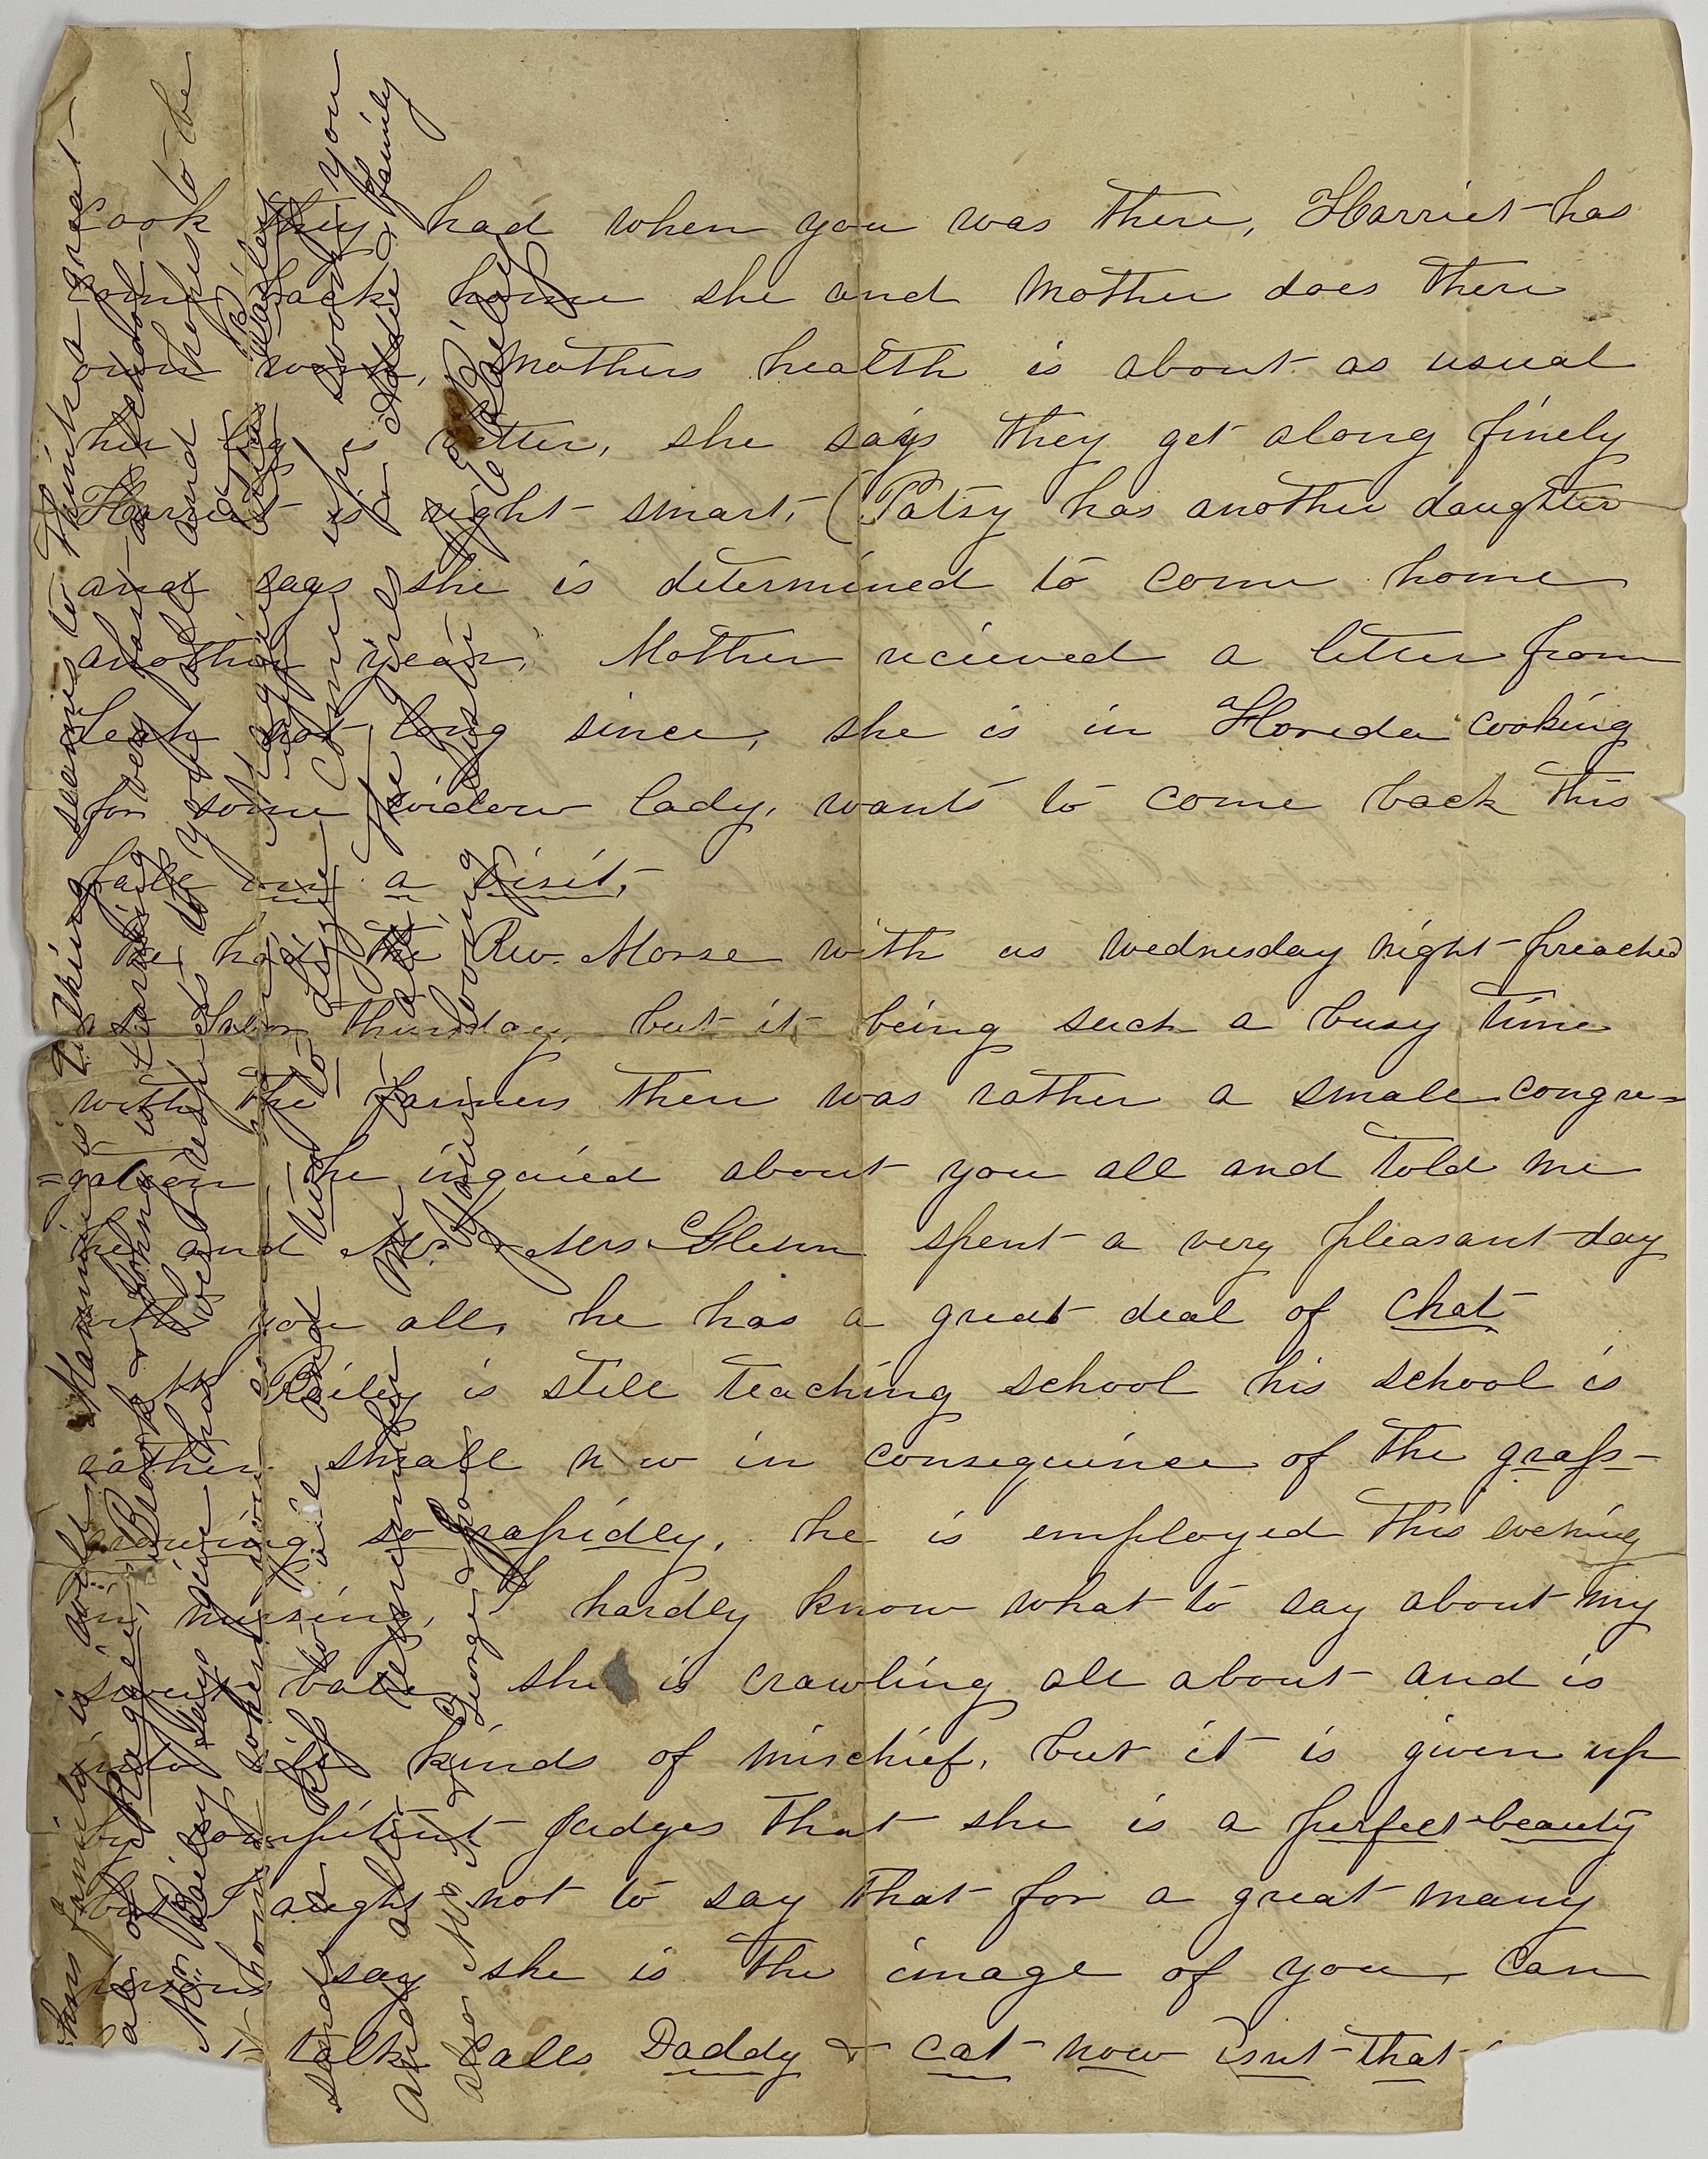 cook they had when you was there, Harriet has
come back home she and Mother does there
own work, Mothers health is about as usual
her leg is better, she says they get along finely
Harriet is right smart, (Patsy has another daughter
and says she is determined to come home
another year, Mother recieved a letter from
Leah not long since, she is in Floreda cooking
for some widow lady, wants to come back this
fall on a visit,
We had the Rev. Morse with us wednesday night preached
thursday, but it being such a busy time
with the farmers there was rather a small congre=
=gation, he inquired about you all and told me
he and Mr & Mrs Glenn spent a very pleasant day
with you all, he has a great deal of chat
Mr Bailey is still teaching school his school is
rather small now in consequence of the grass
growing so rapidly, he is employed this evening
in nursing, I hardly know what to say about my
sweet babe she is crawling all about and is
into all kinds of mischief, but it is given up
by compitent Judges that she is a perfect beauty
but I aught not to say that for a great many
persons say she is the image of you, Can
talk calls Daddy & cat now isnt that
family is well, Mammie is talking seems to think a great
deal of Maggie, Brooks & Johnny is learning very fast at school
Mr. Bailey says give his best respects to you all and hopes to be
at home
sends a kiss to Lizzie Come up soon you
and all remember me to all the girls & Addie & family
also Mr & George & Your loving Sister E Bailey